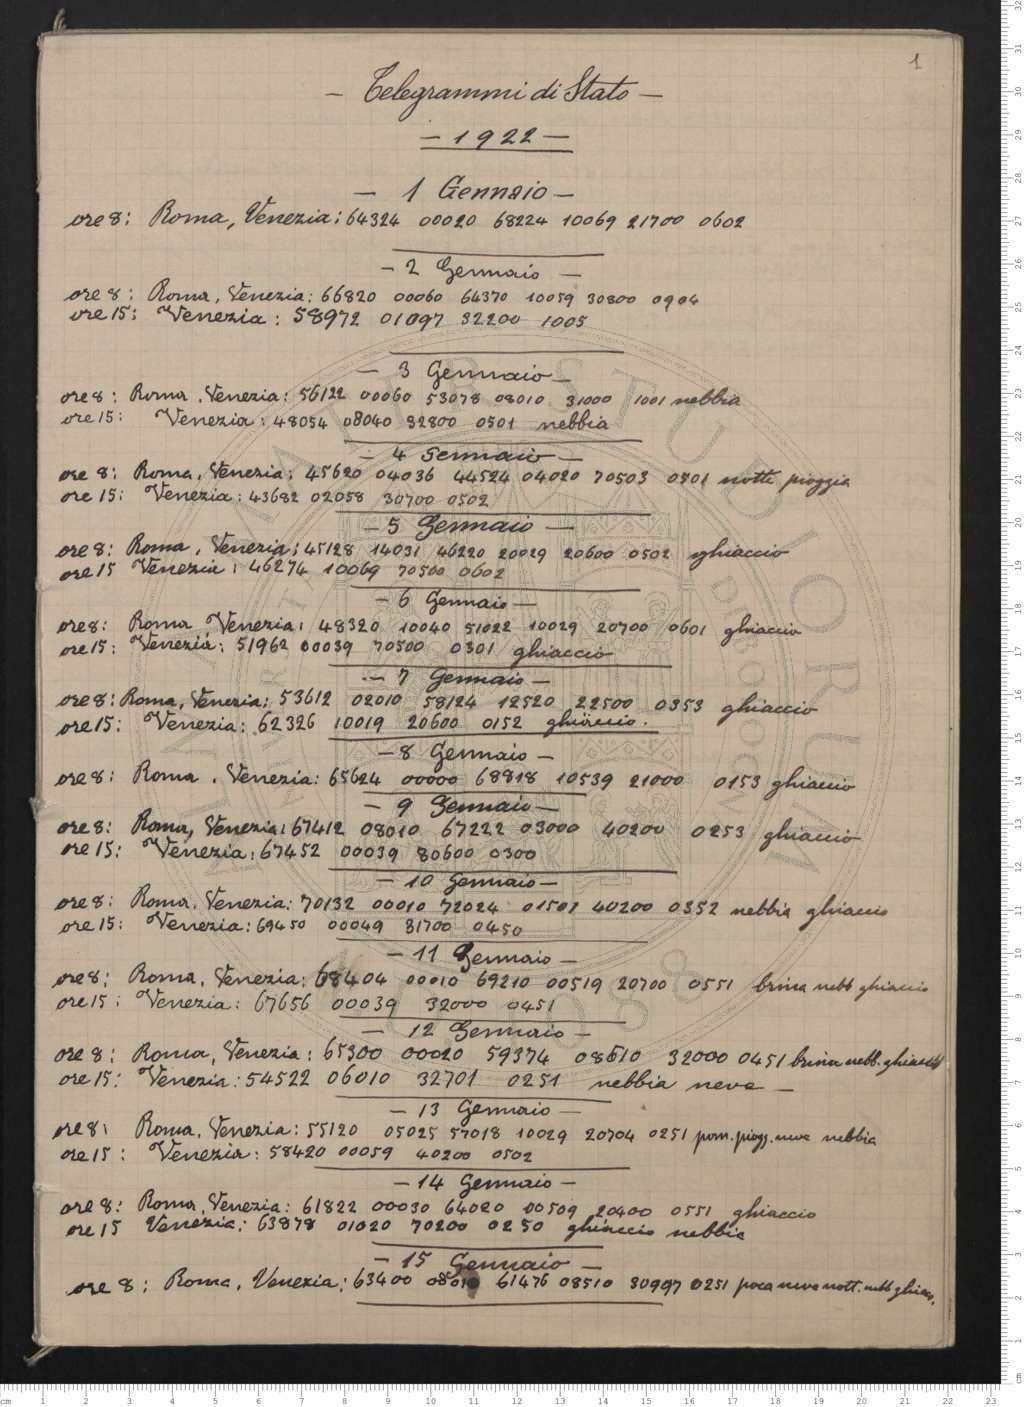 1
— Telegrammi di Stato —
— 1922 —
— 1 Gennaio —
ore 8: Roma, Venezia: 64324 00020 68224 10069 21700 0602
— 2 Gennaio —
ore 8: Roma, Venezia: 66820 00060 64370 10059 30800 0904
ore 15: Venezia: 58972 01097 32200 1005
— 3 Gennaio —
ore 8: Roma, Venezia: 56122 00060 53078 08010 31000 1001 nebbia
ore 15: Venezia: 48054 08040 32800 0501 nebbia
— 4 Gennaio —
ore 8: Roma, Venezia: 45620 04036 44524 04020 70503 0501 notte pioggia
ore 15: Venezia: 43682 02058 30700 0502
— 5 Gennaio —
ore 8: Roma, Venezia: 45128 14031 46220 20029 20600 0502 ghiaccio
ore 15 Venezia: 46274 10069 70500 0602
— 6 Gennaio —
ore 8: Roma Venezia: 48320 10040 51022 10029 20700 0601 ghiaccio
ore 15: Venezia: 51962 00039 70500 0301 ghiaccio
— 7 Gennaio —
ore 8: Roma, Venezia: 53612 02010 58124 12520 22500 0353 ghiaccio
ore 15: Venezia: 62326 10019 20600 0152 ghiaccio.
— 8 Gennaio —
ore 8: Roma, Venezia: 65624 00000 68818 10539 21000 0153 ghiaccio
— 9 Gennaio —
ore 8: Roma, Venezia: 67412 08010 67222 03000 40200 0253 ghiaccio
ore 15: Venezia: 67452 00039 80600 0300
— 10 Gennaio —
ore 8: Roma, Venezia: 70132 00010 72024 01501 40200 0352 nebbia ghiaccio
ore 15: Venezia: 69450 00049 31700 0450
— 11 Gennaio —
ore 8: Roma, Venezia: 68404 00010 69210 00519 20700 0551 brina nebb ghiaccio
ore 15: Venezia: 67656 00039 32000 0451
— 12 Gennaio —
ore 8: Roma, Venezia: 65300 00020 59374 08510 32000 0451 brina nebb. ghiaccio
ore 15: Venezia: 54522 06010 32701 0251 nebbia neve —
— 13 Gennaio —
ore 8: Roma, Venezia: 55120 05025 57018 10029 20704 0251 pom. piogg. neve nebbia
ore 15: Venezia: 58420 00059 40200 0502
— 14 Gennaio —
ore 8: Roma, Venezia: 61822 00030 64020 00509 20400 0551 ghiaccio
ore 15 Venezia: 63878 01020 70200 0250 ghiaccio nebbia
— 15 Gennaio —
ore 8: Roma, Venezia: 63400 61476 08510 30997 0251 poca neve nott. nebb ghiacc.